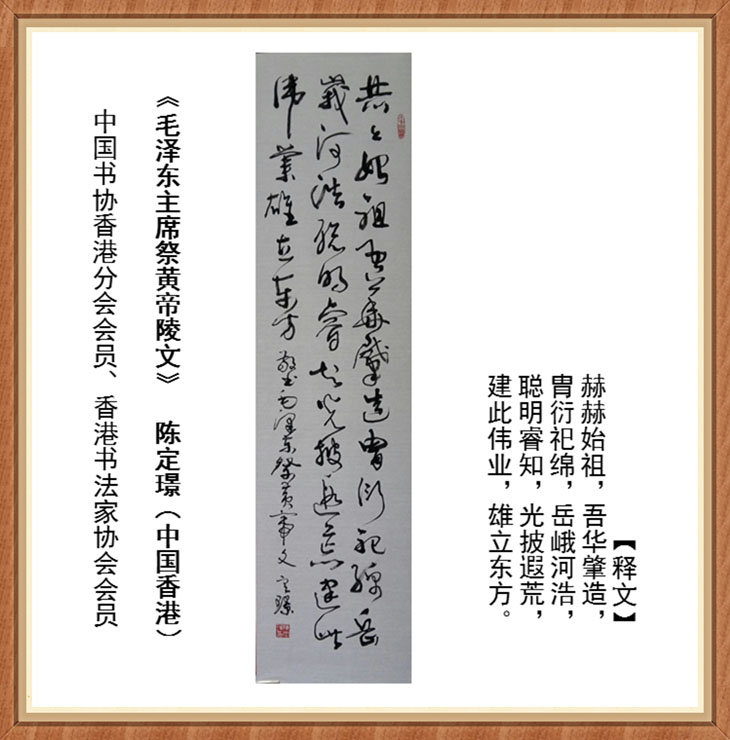 【释文】
赫赫始祖，吾华肇造，
胄衍祀绵，岳峨河浩，
聪明睿知，光披遐荒，
建此伟业，雄立东方。
赫々始祖吾华肇造胄衍祀绵岳
峨河浩聪明睿知光披遐荒建此
伟業雄立东方 敬书毛泽东祭黄帝文 定璟
《毛泽东主席祭黄帝陵文》 陈定璟（中国香港）
中国书协香港分会会员、香港书法家协会会员